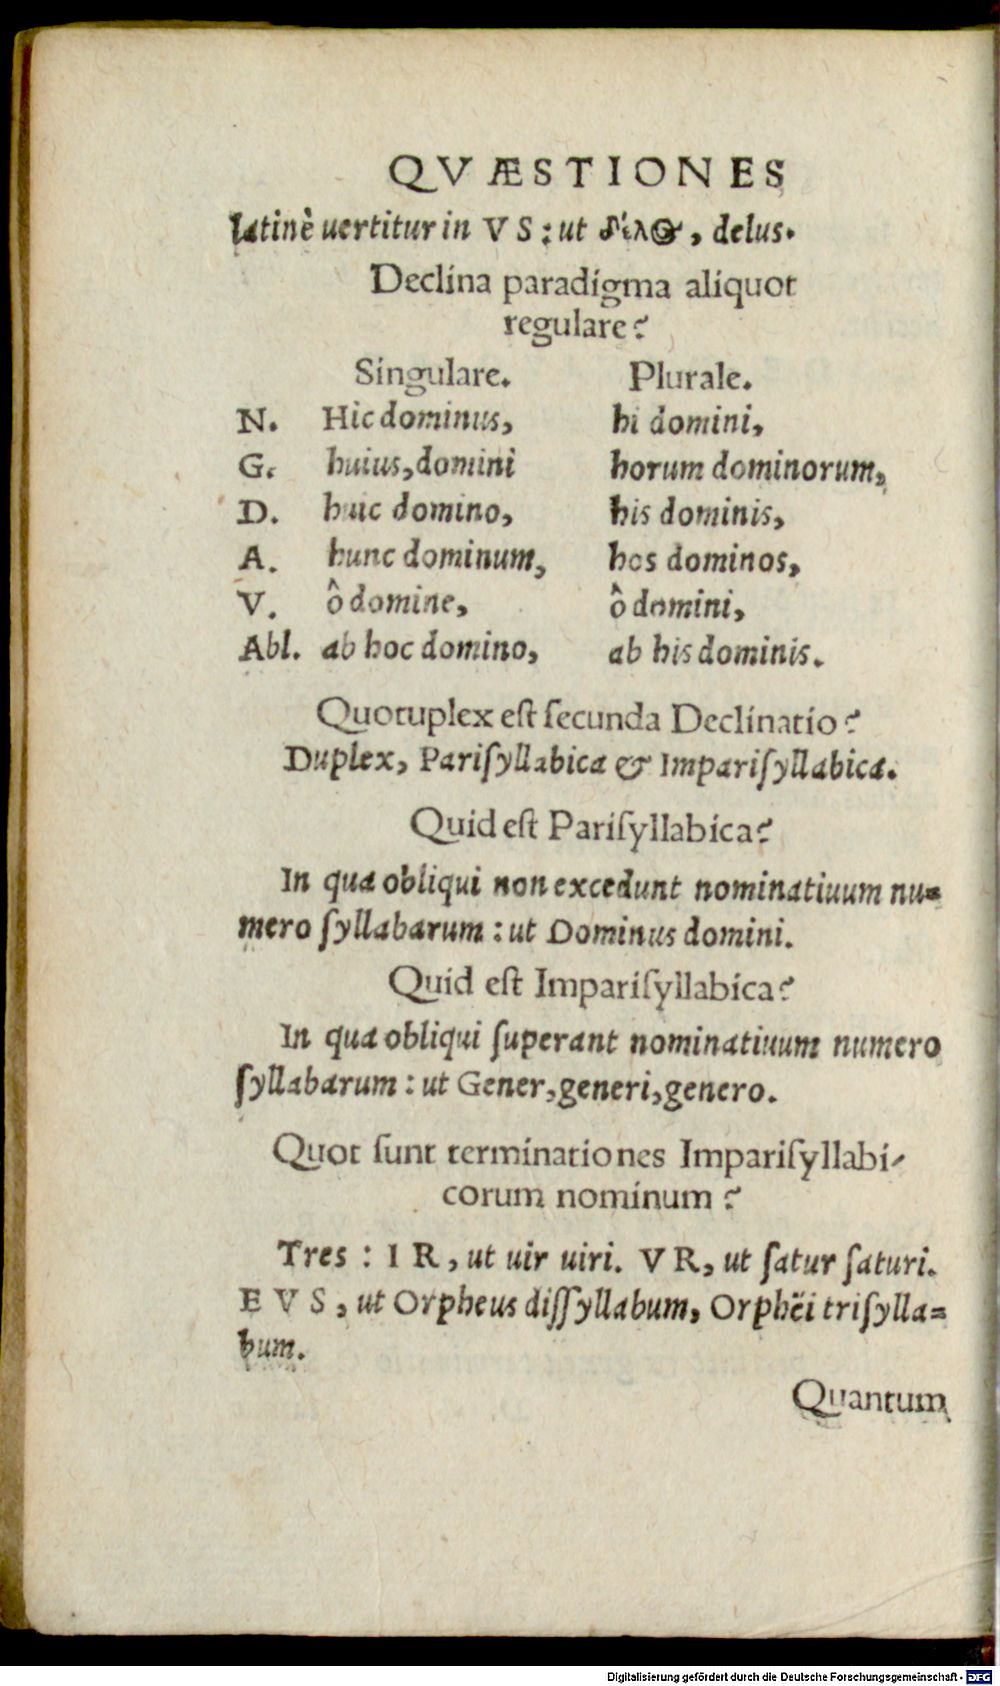 QVÆSTIONES
latinè uertitur in VS: ut δῖλος, delus.
Declina paradigma aliquot
regulare?
Singulare. Plurale.
N. Hic dominus, hi domini,
G. huius, domini horum dominorum,
D. huic domino, his dominis,
A. hunc dominum, hos dominos,
V. ô domine, ô domini,
Abl. ab hoc domino, ab his dominis.
Quotuplex est secunda Declinatio?
Duplex, Pariſyllabica & Impariſyllabica.
Quid est Pariſyllabica?
In qua obliqui non excedunt nominatiuum nu=
mero ſyllabarum: ut Dominus domini.
Quid est Impariſyllabica?
In qua obliqui ſuperant nominatiuum numero
ſyllabarum: ut Gener, generi, genero.
Quot ſunt terminationes Impariſyllabi-
corum nominum?
Tres: IR, ut uir uiri. VR, ut ſatur ſaturi.
EVS, ut Orpheus diſſyllabum, Orphëi triſylla=
bum.
Quantum
Digitalisierung gefördert durch die Deutsche Forschungsgemeinschaft - DFG